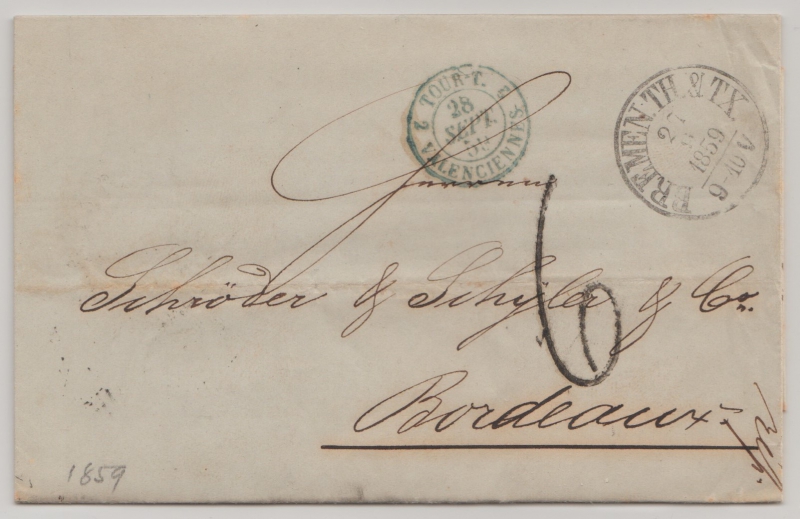 TOUR-T.
2 VALENCIENNES. 2
28
SEPT.
59
BREMEN TH. & TX.
27
9
1859
9-10 V
Herren
Schröder & Schÿler & Co.
6
Bordeaux
1859